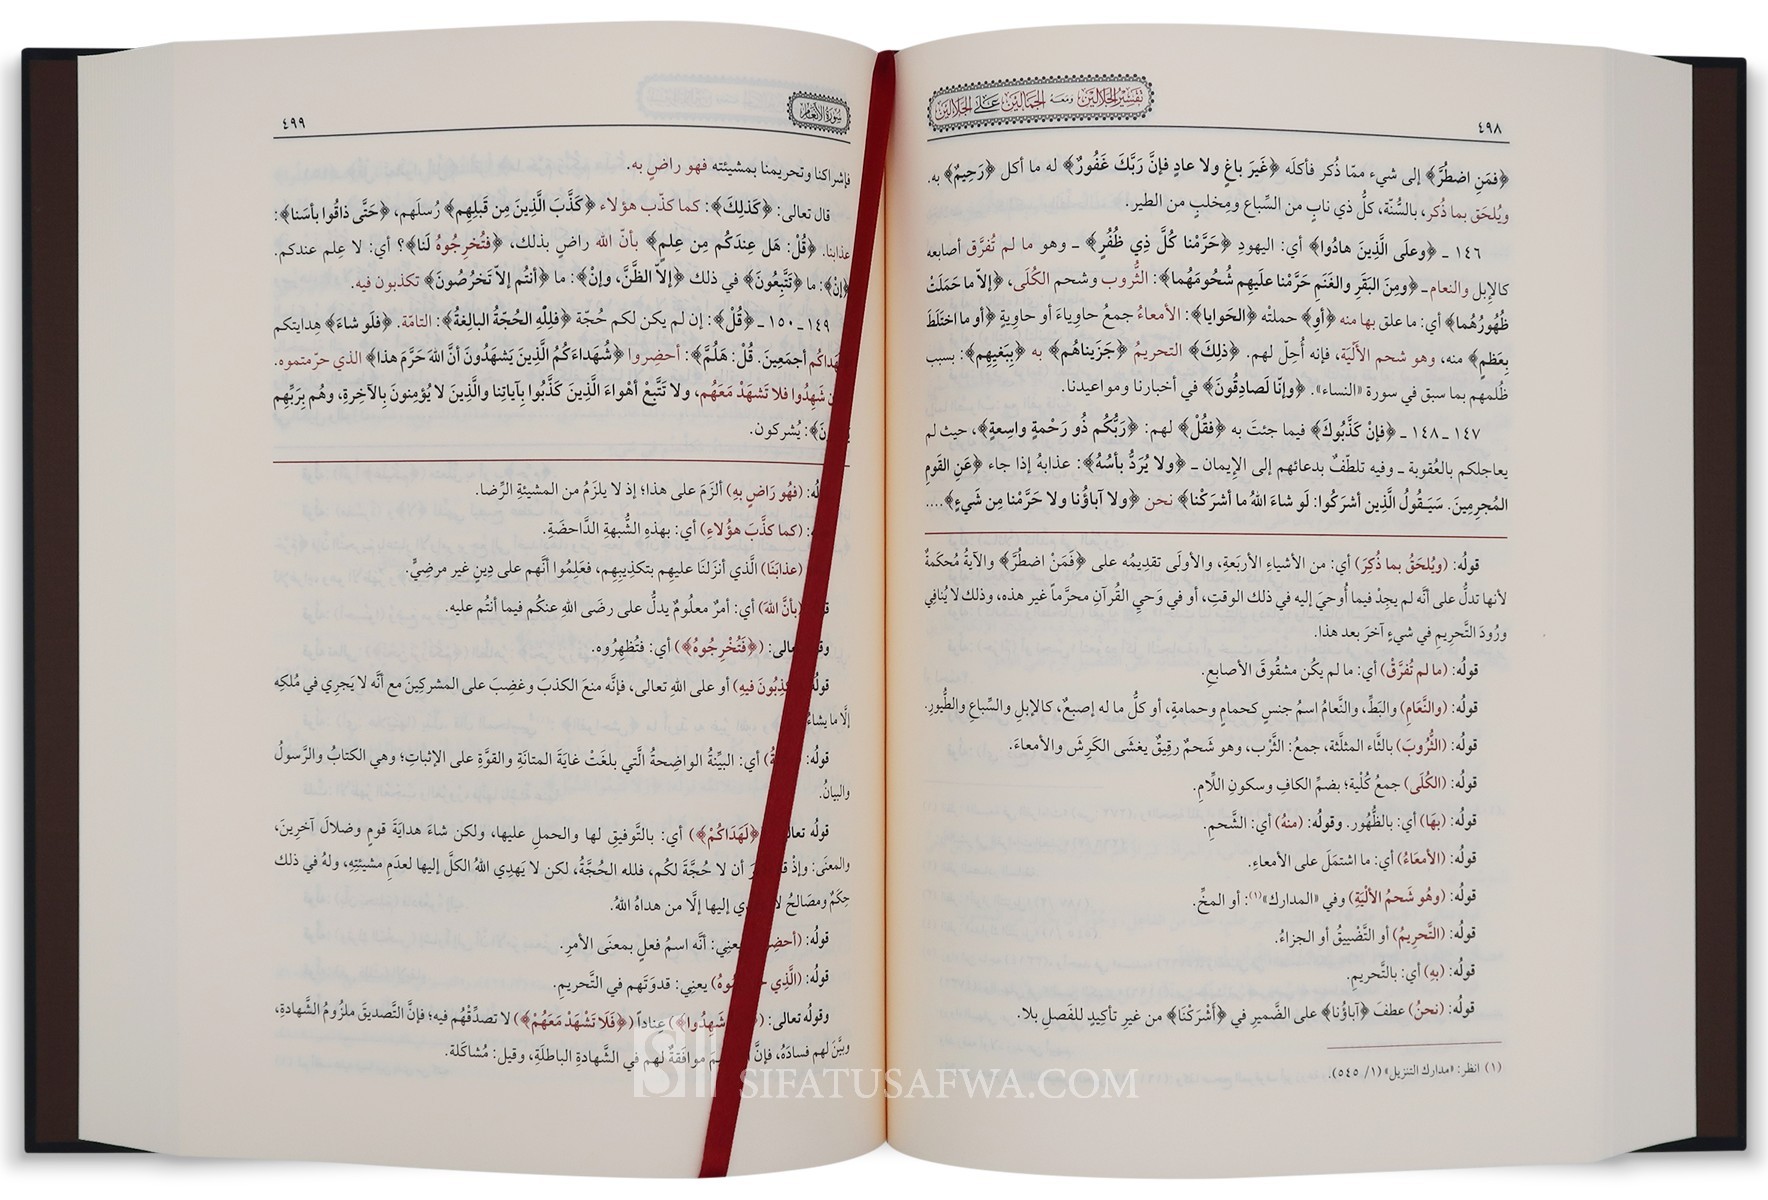 ٤٩٨
تفسير الجلالين ومعه الجمالين على الجلالين
﴿فمَنِ اضطُرَّ﴾ إلى شيء ممّا ذُكر فأكلَه ﴿غَيرَ باغٍ ولا عادٍ فإنَّ رَبَّكَ غَفُورٌ﴾ له ما أكل ﴿رَحِيمٌ﴾ به.
ويُلحَق بما ذُكر، بالسُّنّة، كلُّ ذي نابٍ من السِّباع ومِخلبٍ من الطير.
١٤٦ ـ ﴿وعلَى الَّذِينَ هادُوا﴾ أي: اليهودِ ﴿حَرَّمْنا كُلَّ ذِي ظُفُرٍ﴾ ـ وهو ما لم تُفرَّق أصابعه
كالإبل والنعام ـ ﴿ومِنَ البَقَرِ والغَنَمِ حَرَّمْنا علَيهِم شُحُومَهُما﴾: الثُّروب وشحم الكُلَى، ﴿إلاّ ما حَمَلَتْ
ظُهُورُهُما﴾ أي: ما علق بها منه ﴿أو﴾ حملتْه ﴿الحَوايا﴾: الأمعاءُ جمعُ حاوِياءَ أو حاوِيةٍ ﴿أو ما اختَلَطَ
بِعَظمٍ﴾ منه، وهو شحم الأَلْية، فإنه أُحِلّ لهم. ﴿ذلِكَ﴾ التحريمُ ﴿جَزَيناهُم﴾ به ﴿بِبَغيِهِم﴾: بسبب
ظُلمهم بما سبق في سورة «النساء». ﴿وإنّا لَصادِقُونَ﴾ في أخبارنا ومواعيدنا.
١٤٧ ـ ١٤٨ ـ ﴿فإنْ كَذَّبُوكَ﴾ فيما جئتَ به ﴿فقُلْ﴾ لهم: ﴿رَبُّكُم ذُو رَحْمةٍ واسِعةٍ﴾، حيث لم
يعاجلكم بالعُقوبة ـ وفيه تلطّفٌ بدعائهم إلى الإيمان ـ ﴿ولا يُرَدُّ بأسُهُ﴾: عذابهُ إذا جاء ﴿عَنِ القَومِ
المُجرِمِينَ. سَيَقُولُ الَّذِين أشرَكُوا: لَو شاءَ اللهُ ما أشرَكْنا﴾ نحن ﴿ولا آباؤُنا ولا حَرَّمْنا مِن شَيءٍ﴾....
قولُه: (ويُلحَقُ بما ذُكِرَ) أي: من الأشياءِ الأربَعةِ، والأولَى تقديمُه على ﴿فَمَنْ اضطُرَّ﴾ والآيةُ مُحكَمةٌ
لأنها تدلُّ على أنَّه لم يجِدْ فيما أُوحيَ إليه في ذلك الوقتِ، أو في وَحيِ القُرآنِ محرَّماً غير هذه، وذلك لا يُنافِي
ورُودَ التَّحريمِ في شيءٍ آخرَ بعد هذا.
قولُه: (ما لم تُفرَّقْ) أي: ما لم يكُن مشقُوقَ الأصابعِ.
قولُه: (والنَّعَامِ) والبَطِّ، والنَّعامُ اسمُ جنسٍ كحمامٍ وحمامةٍ، أو كلُّ ما له إصبعٌ، كالإبلِ والسِّباعِ والطُّيورِ.
قولُه: (الثُّرُوبَ) بالثَّاء المثلَّثة، جمعُ: الثَّرْب، وهو شَحمٌ رقِيقٌ يغشَى الكَرِشَ والأمعاءَ.
قولُه: (الكُلَى) جمعُ كُلْية؛ بضمِّ الكافِ وسكونِ اللَّامِ.
قولُه: (بهَا) أي: بالظُّهُور. وقولُه: (منهُ) أي: الشَّحمِ.
قولُه: (الأمعَاءُ) أي: ما اشتمَلَ على الأمعاءِ.
قولُه: (وهُو شَحمُ الألْيَةِ) وفي «المدارك»(١): أو المخِّ.
قولُه: (التَّحرِيمُ) أو التَّضْيِيقُ أو الجزاءُ.
قولُه: (بهِ) أي: بالتَّحريمِ.
قولُه: (نحنُ) عطفَ ﴿آباؤُنا﴾ على الضَّميرِ في ﴿أَشْرَكْنَا﴾ من غيرِ تأكيدٍ للفَصلِ بلا.
(١) انظر: «مدارك التنزيل» (١/ ٥٤٥).
سورة الأنعام
٤٩٩
فإشراكنا وتحريمنا بمشيئته فهو راضٍ به.
قال تعالى: ﴿كَذلِكَ﴾: كما كذّب هؤلاء ﴿كَذَّبَ الَّذِينَ مِن قَبلِهِم﴾ رُسلَهم، ﴿حَتَّى ذاقُوا بأسَنا﴾:
عذابنا. ﴿قُلْ: هَل عِندَكُم مِن عِلمٍ﴾ بأنّ الله راضٍ بذلك، ﴿فتُخرِجُوهُ لَنا﴾؟ أي: لا عِلم عندكم.
﴿إنْ﴾: ما ﴿تَتَّبِعُونَ﴾ في ذلك ﴿إلاّ الظَّنَّ، وإنْ﴾: ما ﴿أنتُم إلاّ تَخرُصُونَ﴾ تكذبون فيه.
١٤٩ ـ ١٥٠ ـ ﴿قُلْ﴾: إن لم يكن لكم حُجّة ﴿فلِلّٰهِ الحُجّةُ البالِغةُ﴾: التامّة. ﴿فلَو شاءَ﴾ هِدايتكم
﴿لَهَداكُم أجمَعِينَ. قُلْ: هَلُمَّ﴾: أحضِروا ﴿شُهَداءَكُمُ الَّذِينَ يَشهَدُونَ أنَّ اللهَ حَرَّمَ هذا﴾ الذي حرّمتموه.
شَهِدُوا فلا تَشهَدْ مَعَهُم، ولا تَتَّبِعْ أهْواءَ الَّذِينَ كَذَّبُوا بِآياتِنا والَّذِينَ لا يُؤمِنونَ بِالآخِرةِ، وهُم بِرَبِّهِم
﴾: يُشركون.
(فهُو رَاضٍ بهِ) ألزَمَ على هذا؛ إذ لا يلزَمُ من المشيئةِ الرِّضا.
(كما كذَّبَ هؤُلاءِ) أي: بهذهِ الشُّبهةِ الدَّاحضَةِ.
(عذابَنَا) الَّذي أنزَلنَا عليهم بتكذِيبِهِم، فعَلِمُوا أنَّهم على دِينٍ غير مرضِيٍّ.
(بأنَّ اللهَ) أي: أمرٌ معلُومٌ يدلُّ على رضَى اللهِ عنكُم فيما أنتُم عليه.
تعالى: (﴿فَتُخْرِجُوهُ﴾) أي: فتُظهِرُوه.
قولُه: فيهِ) أو على اللهِ تعالى، فإنَّه منعَ الكذبَ وغضِبَ على المشركِينَ مع أنَّه لا يَجرِي في مُلكِه
إلَّا ما يشاءُ
قولُه: أي: البيِّنةُ الواضِحةُ الَّتي بلغَتْ غايَةَ المتانَةِ والقوَّةِ على الإثباتِ؛ وهي الكتابُ والرَّسولُ
والبيانُ.
قولُه تعالى: ﴿لَهَدَاكُمْ﴾) أي: بالتَّوفيقِ لها والحملِ عليها، ولكن شاءَ هدايَةَ قومٍ وضلالَ آخرِينَ،
والمعنَى: وإذْ أن لا حُجَّةَ لكُم، فلله الحُجَّةُ، لكن لا يَهدِي اللهُ الكلَّ إليها لعدَمِ مشيئتِهِ، ولهُ في ذلك
حِكَمٌ ومصَالحُ إليها إلَّا من هداهُ اللهُ.
قولُه: يعنِي: أنَّه اسمُ فعلٍ بمعنَى الأمرِ.
قولُه: (الَّذِي يعنِي: قدوَتَهم في التَّحريمِ.
وقولُه تعالى: شَهِدُوا﴾) عِناداً (﴿فَلَا تَشْهَدْ مَعَهُمْ﴾) لا تصدِّقْهُم فيه؛ فإنَّ التَّصديقَ ملزُومُ الشَّهادةِ،
وبيَّنَ لهم فسادَهُ، فإنَّ موافَقةٌ لهم في الشَّهادةِ الباطلَةِ، وقيل: مُشاكَلة.
SIFATUSAFWA.COM